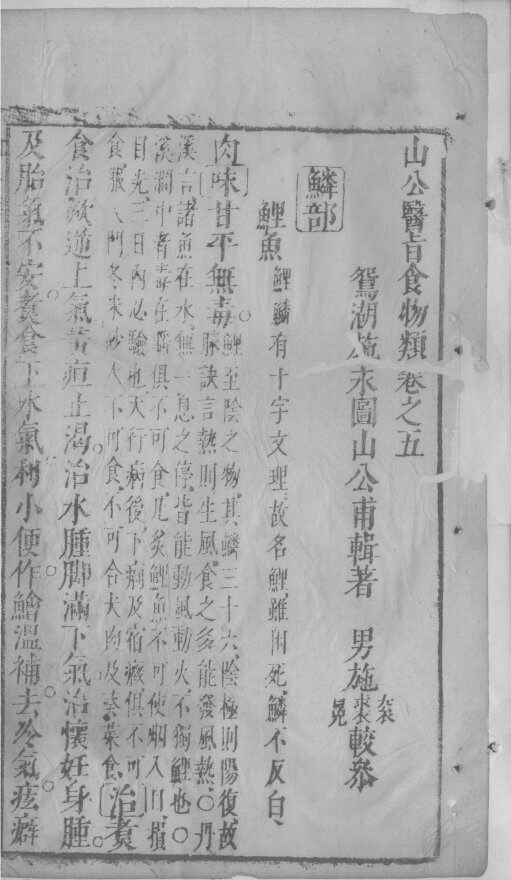 山公醫旨食物類卷之五
鴛湖施永圖山公甫輯著　男施袞裘冕較叅
鱗部
鯉魚鯉鱗有十字文理、故名鯉、雖困死、鱗不反白、
肉味甘平無毒○鯉至陰之物、其鱗三十六、陰極則陽復、故
脉訣言熱則生風、食之多能發風熱、○丹
溪言諸魚在水、無一息之停、皆能動風動火、不獨鯉也○
溪澗中者毒在腦、俱不可食、凡炙鯉魚不可使烟入目、損
目光、三日內必驗也、天行病後、下痢及宿癥、俱不可
食、服天門冬朱砂人不可食、不可合犬肉及葵菜食、治煮
食治欬逆上氣黃疸止渴治水腫脚滿下氣治懷妊身腫、
及胎氣不安○煮食下水氣利小便○作鱠溫補去冷氣痃癖、